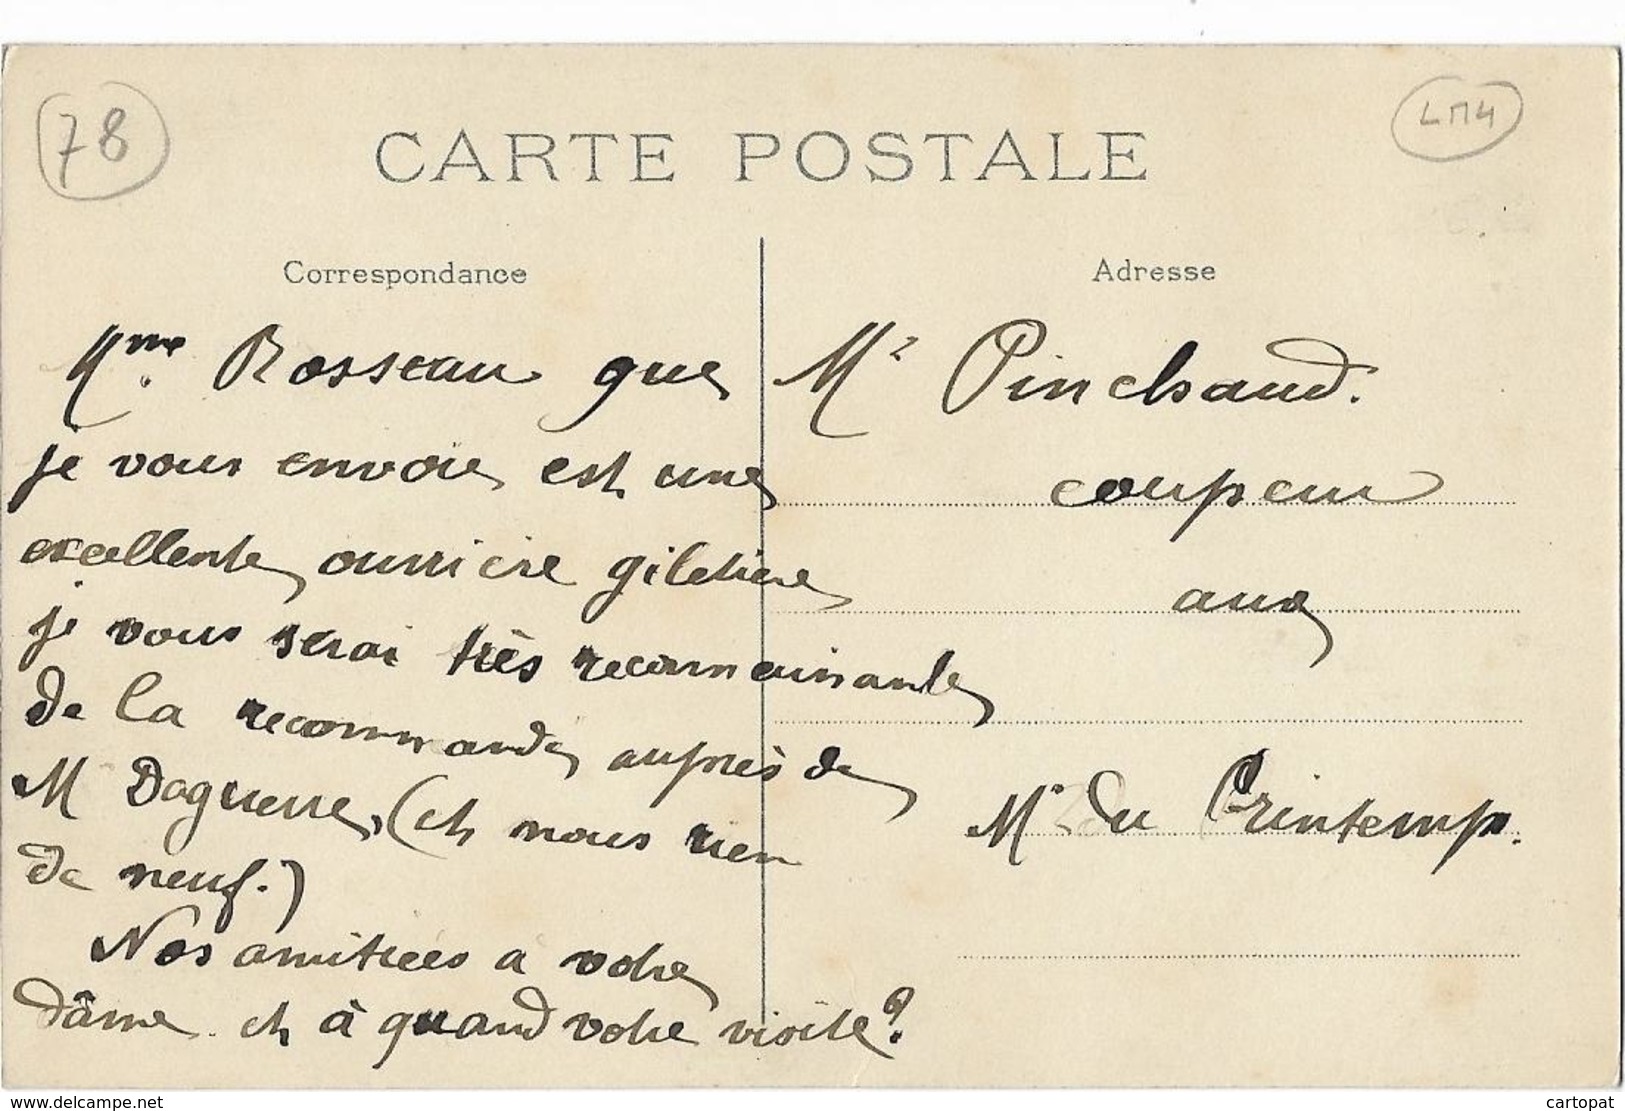 78
LM4
CARTE POSTALE
Correspondance
Mme. Rosseau que
je vous envoie est une
excellente ouvrière giletière
je vous serai très reconnaissante
de la recommander auprès de
M Daguerre, (et nous rien
de neuf.)
Nos amitiées a votre
dâme et à quand votre visite?
Adresse
Mr Pinchaud.
coupeur
aux
Mn du Printemps.
delcampe.net
cartopat